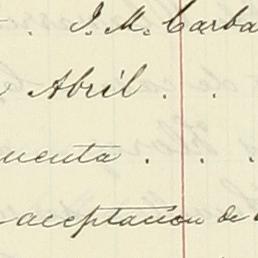 . J. M. Carba
Abril . .
uenta . . .
aceptacion de